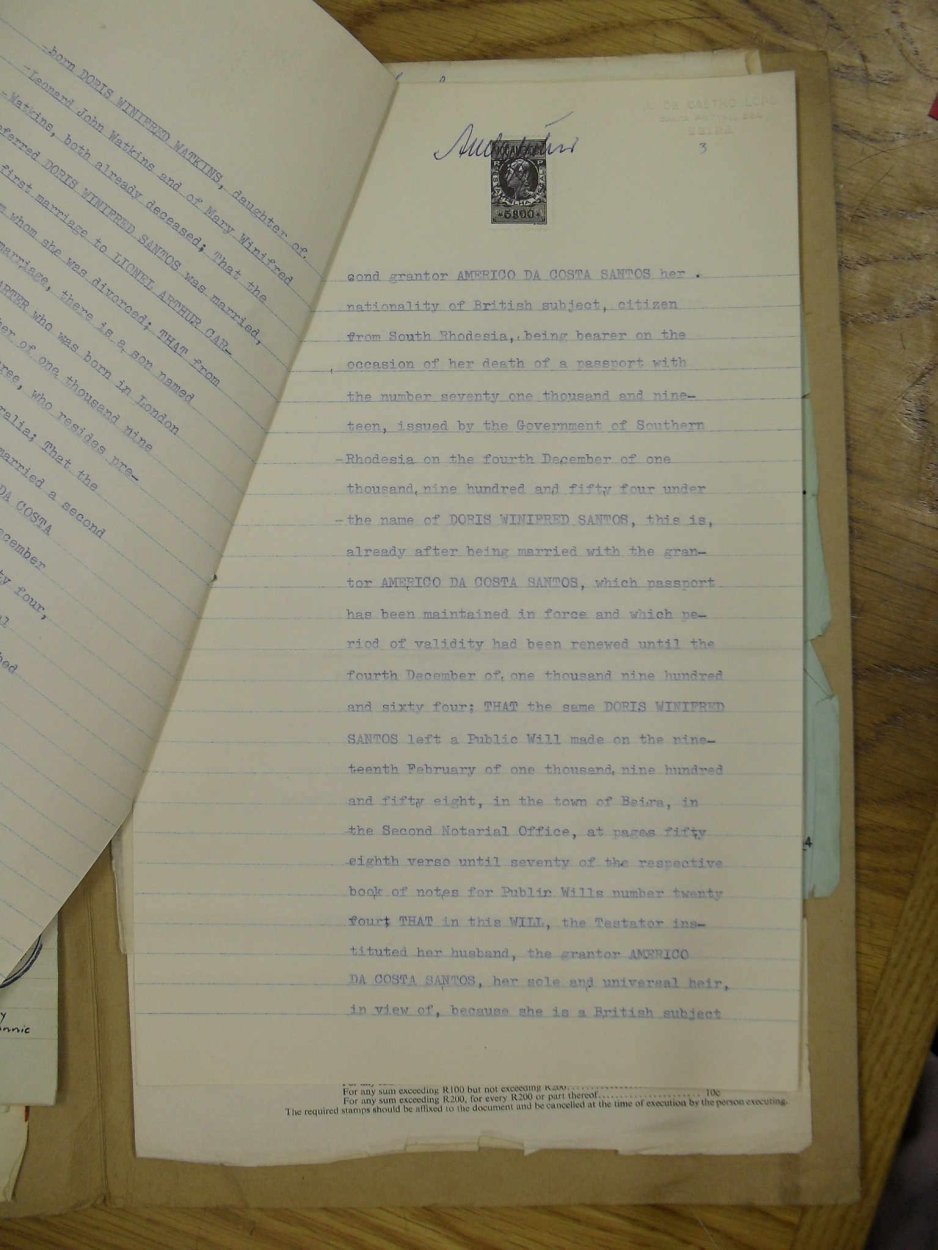 -born DORIS WINIFRED WATKINS, daughter of
-Leonard John Watkins and of Mary Winifred
-Watkins, both already deceased; That the
eferred DORIS WINIFRED SANTOS was married,
first marriage to LIONEL ARTHUR CAR-
m whom she was divorced; THAT from
marriage, there is a son named
ARTER who was born in London
er of one thousand nine
ree, who resides pre-
ralia; That the
married a second
DA COSTA
ecember
ty four,
DE CASTRO LOPO
BEIRA
3
5$00
cond grantor AMERICO DA COSTA SANTOS her .
nationality of British subject, citizen
from South Rhodesia, being bearer on the
occasion of her death of a passport with
the number seventy one thousand and nine-
teen, issued by the Government of Southern
-Rhodesia on the fourth December of one
thousand, nine hundred and fifty four under
-the name of DORIS WINIFRED SANTOS, this is,
already after being married with the gran-
tor AMERICO DA COSTA SANTOS, which passport
has been maintained in force and which pe-
riod of validity had been renewed until the
fourth December of, one thousand nine hundred
and sixty four; THAT the same DORIS WINIFRED
SANTOS left a Public Will made on the nine-
teenth February of one thousand, nine hundred
and fifty eight, in the town of Beira, in
the Second Notarial Office, at pages fifty
eighth verso until seventy of the respective
book of notes for Public Wills number twenty
four; THAT in this WILL, the Testator ins-
tituted her husband, the grantor AMERICO
DA COSTA SANTOS, her sole and universal heir,
in view of, because she is a British subject
4
For any sum exceeding R100 but not exceeding R200
For any sum exceeding R200, for every R200 or part thereof 10c
The required stamps should be affixed to the document and be cancelled at the time of execution by the person executing.